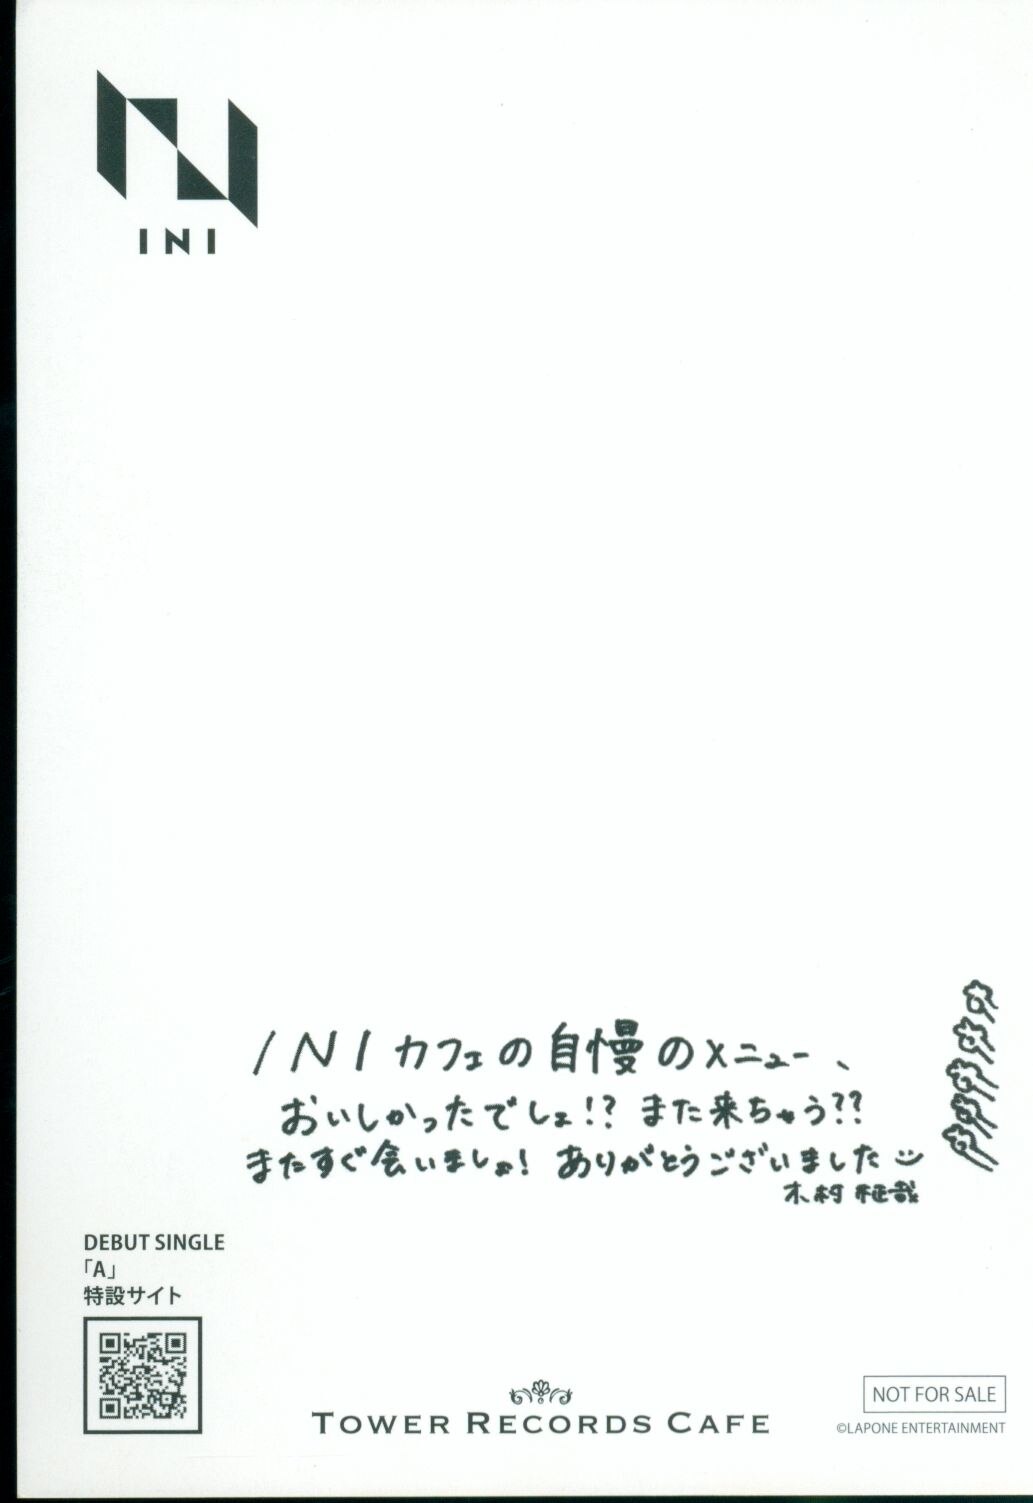 INI
INIカフェの自慢のメニュー、
おいしかったでしょ!? また来ちゃう??
またすぐ会いましょ! ありがとうございました
木村柾哉
DEBUT SINGLE
「A」
特設サイト
TOWER RECORDS CAFE
NOT FOR SALE
©LAPONE ENTERTAINMENT